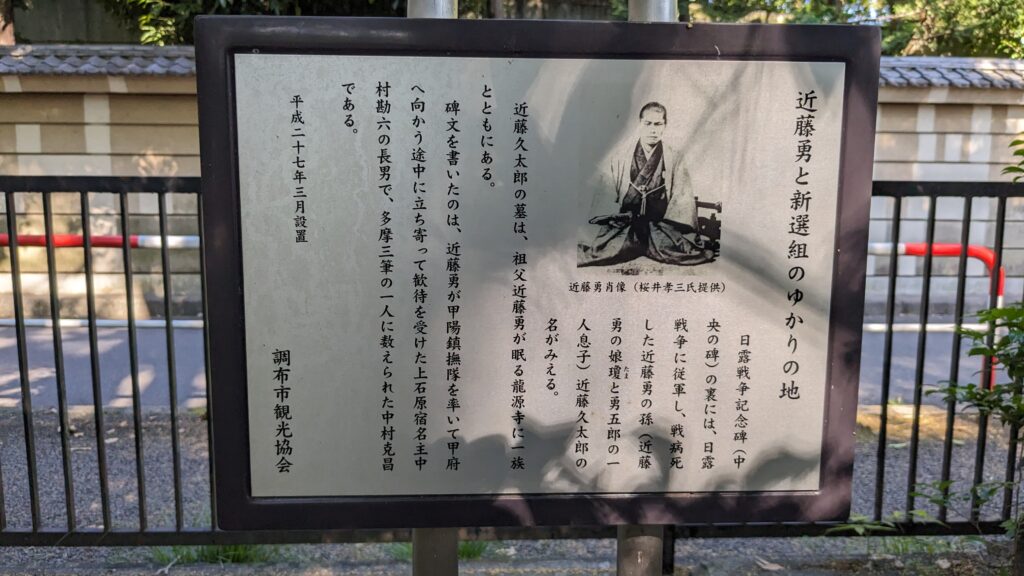 近藤勇と新選組のゆかりの地
日露戦争記念碑（中
央の碑）の裏には、日露
戦争に従軍し、戦病死
した近藤勇の孫（近藤
勇の娘瓊と勇五郎の一
たま
人息子）近藤久太郎の
名がみえる。
近藤勇肖像（桜井孝三氏提供）
近藤久太郎の墓は、祖父近藤勇が眠る龍源寺に一族
とともにある。
碑文を書いたのは、近藤勇が甲陽鎮撫隊を率いて甲府
へ向かう途中に立ち寄って歓待を受けた上石原宿名主中
村勘六の長男で、多摩三筆の一人に数えられた中村克昌
である。
平成二十七年三月設置
調布市観光協会